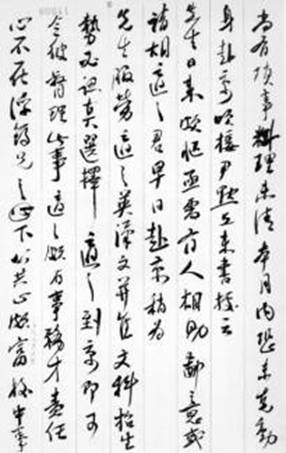 尚有瑣事料理未清本月内恐未克動
身赴京昨接尹默兄來書據云
先生日來頗忙亟需有人相助鄙意或
請胡適之君早日赴京稍為
先生服勞適之英漢文并佳文科招生
勢必認真選擇適之到京即可
令彼督理此事適之頗有事務才責任
心不在浮筠兄之下公共心頗富校中事